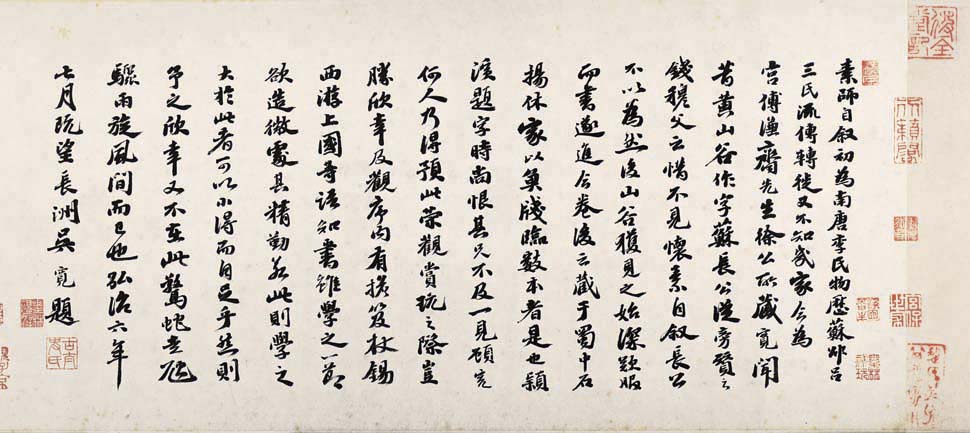 素師自叙初為南唐李氏物歷蘇邵呂
三氏流傳轉徙又不知幾家今為
宫傅謙齋先生徐公所藏寬聞
昔黃山谷作字蘇長公從旁贊之
錢穆父云惜不見懷素自叙長公
不以為然後山谷獲見之始深歎服
而書遂進今卷後云藏于蜀中石
揚休家以魚牋臨數本者是也潁
濱題字時尚恨其兄不及一見顧寬
何人乃得預此榮觀賞玩之際豈
勝欣幸及觀序尚有擔笈杖錫
西游上國等語知書雖學之一節
欲造微處其精勤若此則學之
大於此者可以小得而自足乎然則
予之欣幸又不在此驚蛇走虺
驟雨旋風間而已也弘治六年
七月既望長洲吳寬題